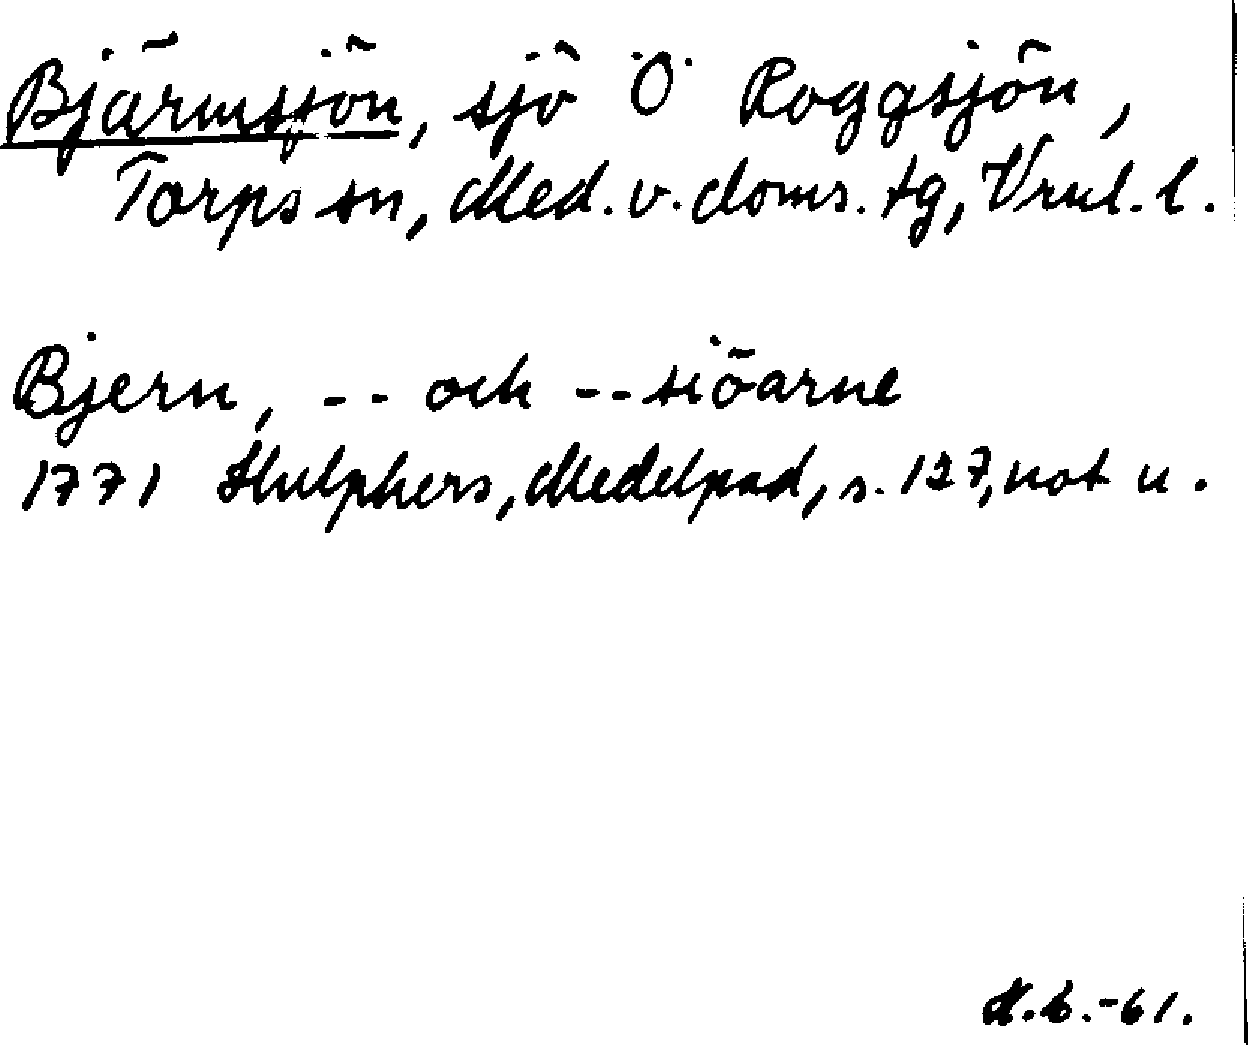 Bjärmsjön, sjö Ö Roggsjön,
Torps sn, Med. v. doms. tg, Vrnl. l.
Bjern, -- och --siöarne
1771 Hulphers, Medelpad, s. 127, not u.
-61.